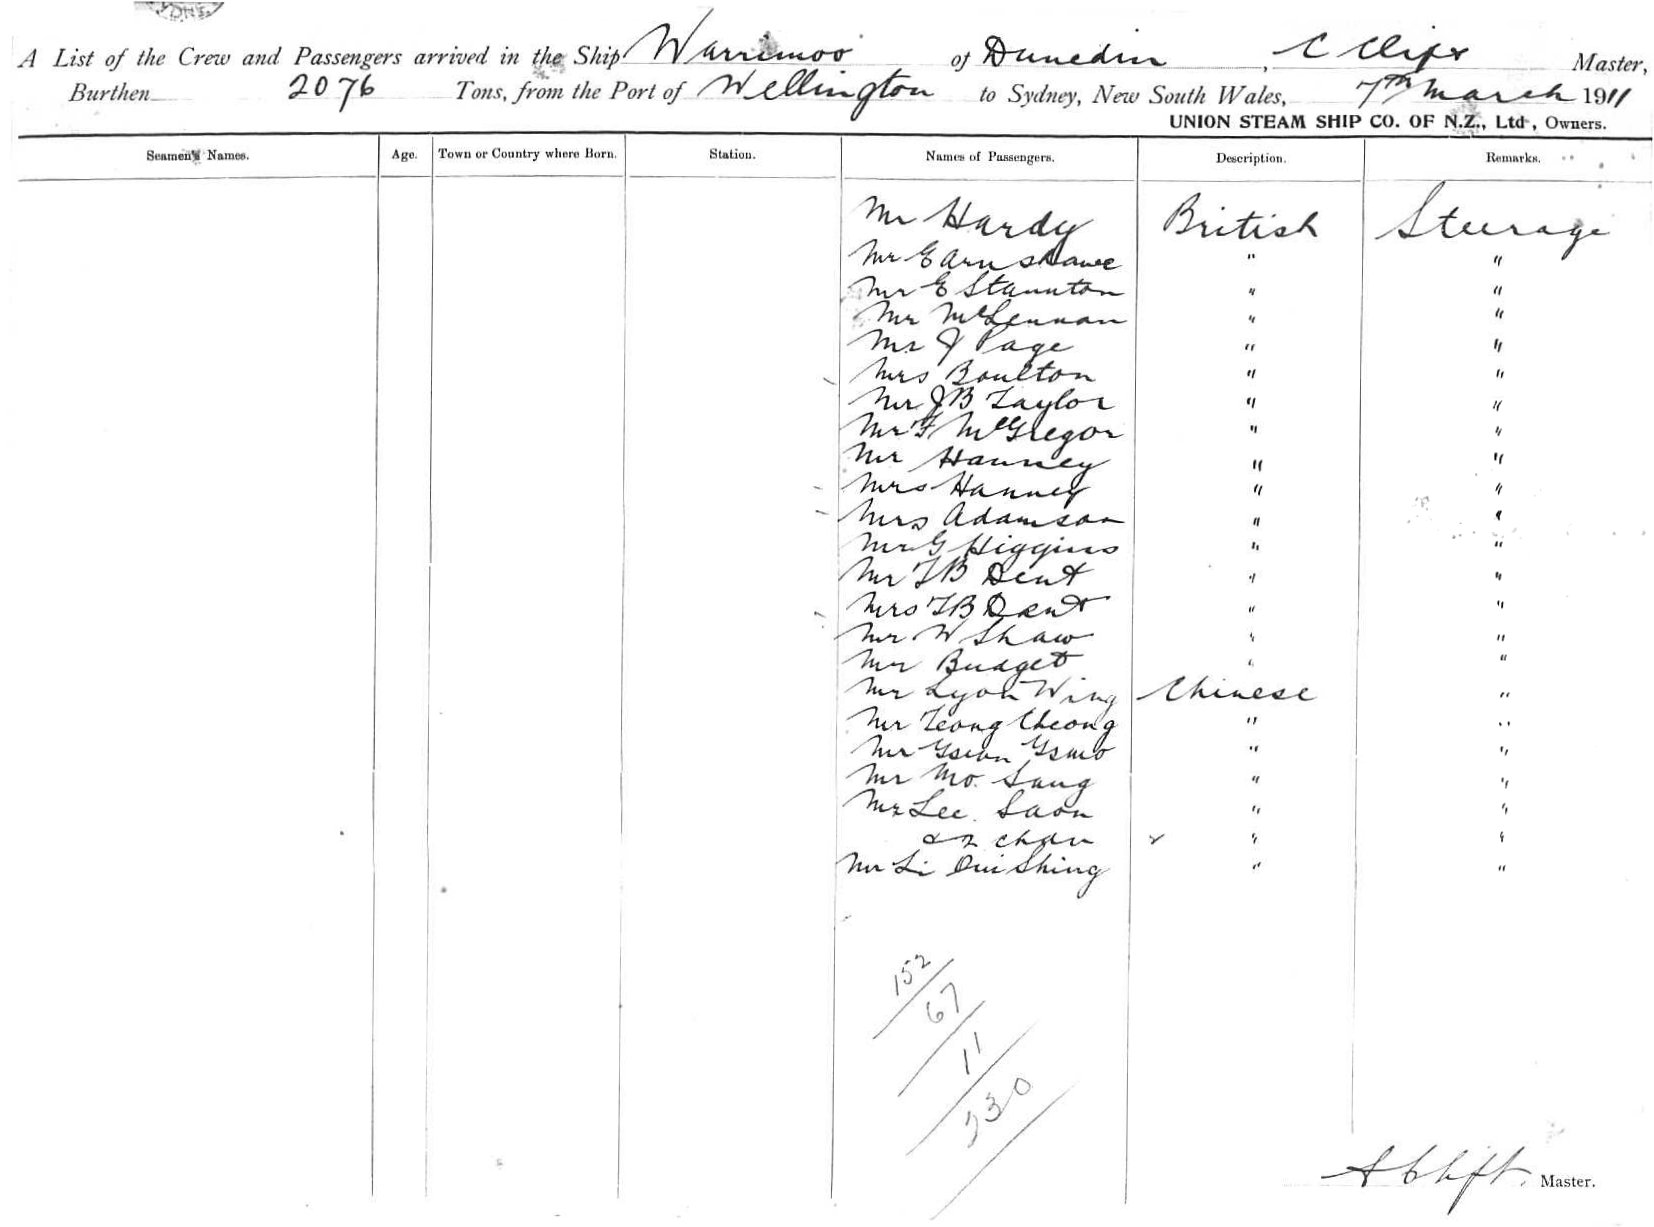 A List of the Crew and Passengers arrived in the Ship Warrimoo of Dunedin, C Master,
Burthen 2076 Tons, from the Port of Wellington to Sydney, New South Wales, 7th March 1911
UNION STEAM SHIP CO. OF N.Z., Ltd., Owners.
Seamen's Names. Age. Town or Country where Born. Station. Names of Passengers. Description. Remarks.
Mr Hardy British Steerage
Mr Earnshawe " "
Mr E Staunton " "
Mr McLennan " "
Mr J Page " "
Mrs Boulton " "
Mr J B Taylor " "
Mr F McGregor " "
Mr Hanney " "
Mrs Hanney " "
Mrs Adamson " "
Mr G Higgins " "
Mr T B Dent " "
Mrs T B Dent " "
Mr W Shaw " "
Mr Budget " "
Mr Lyon Wing Chinese "
Mr Teong Cheong " "
Mr " "
Mr Mo. Sang " "
Mr Lee Saon " "
chdn " "
Mr Li Shing " "
152
67
11
230
Master.